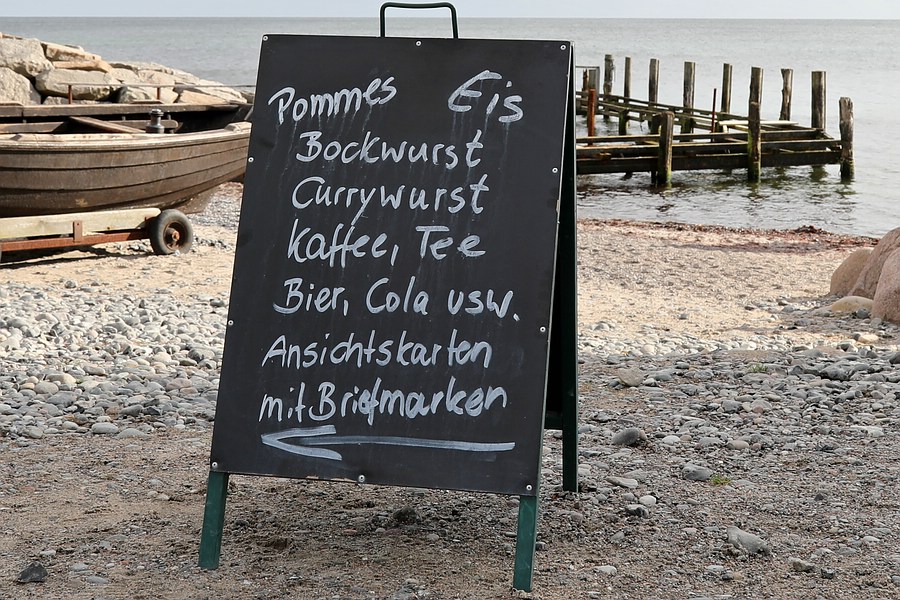 Pommes Eis
Bockwurst
Currywurst
Kaffee, Tee
Bier, Cola usw.
Ansichtskarten
mit Briefmarken